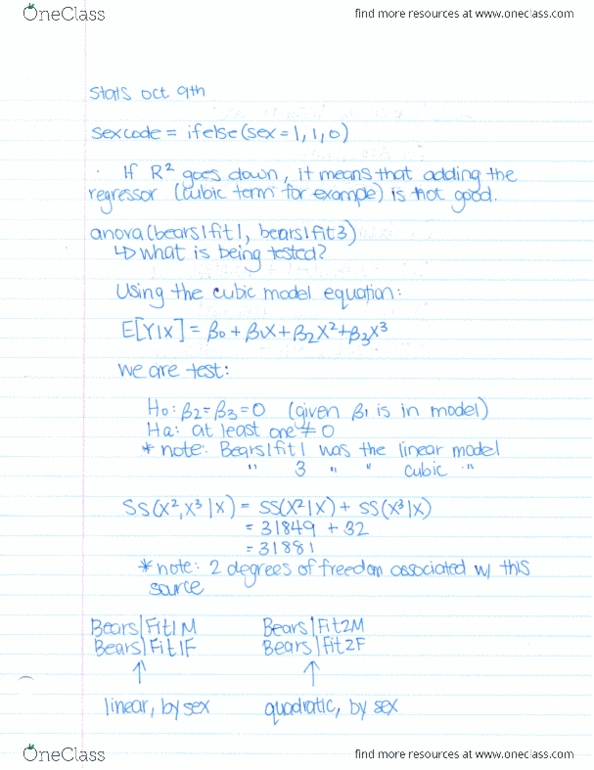 OneClass
find more resources at www.oneclass.com
Stats oct 9th
sexcode = ifelse(sex=1,1,0)
· If R² goes down, it means that adding the
regressor (cubic term for example) is not good.
anova(bears1fit1, bears1fit3)
↳ what is being tested?
Using the cubic model equation:
E[Y|X] = β₀ + β₁X + β₂X² + β₃X³
we are test:
H₀: β₂=β₃=0 (given β₁ is in model)
Ha: at least one ≠ 0
* note: Bears1fit1 was the linear model
" 3 " " cubic "
SS(X², X³|X) = SS(X²|X) + SS(X³|X)
= 31849 + 32
= 31881
* note: 2 degrees of freedom associated w/ this
source
Bears1Fit1M Bears1Fit2M
Bears1Fit1F Bears1fit2F
↑ ↑
linear, by sex quadratic, by sex
OneClass
find more resources at www.oneclass.com